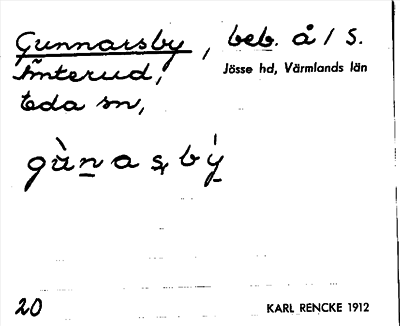 Gunnarsby, beb. å / S.
Åmterud, Jösse hd, Värmlands län
Eda sn,
gùnasby
20 KARL RENCKE 1912